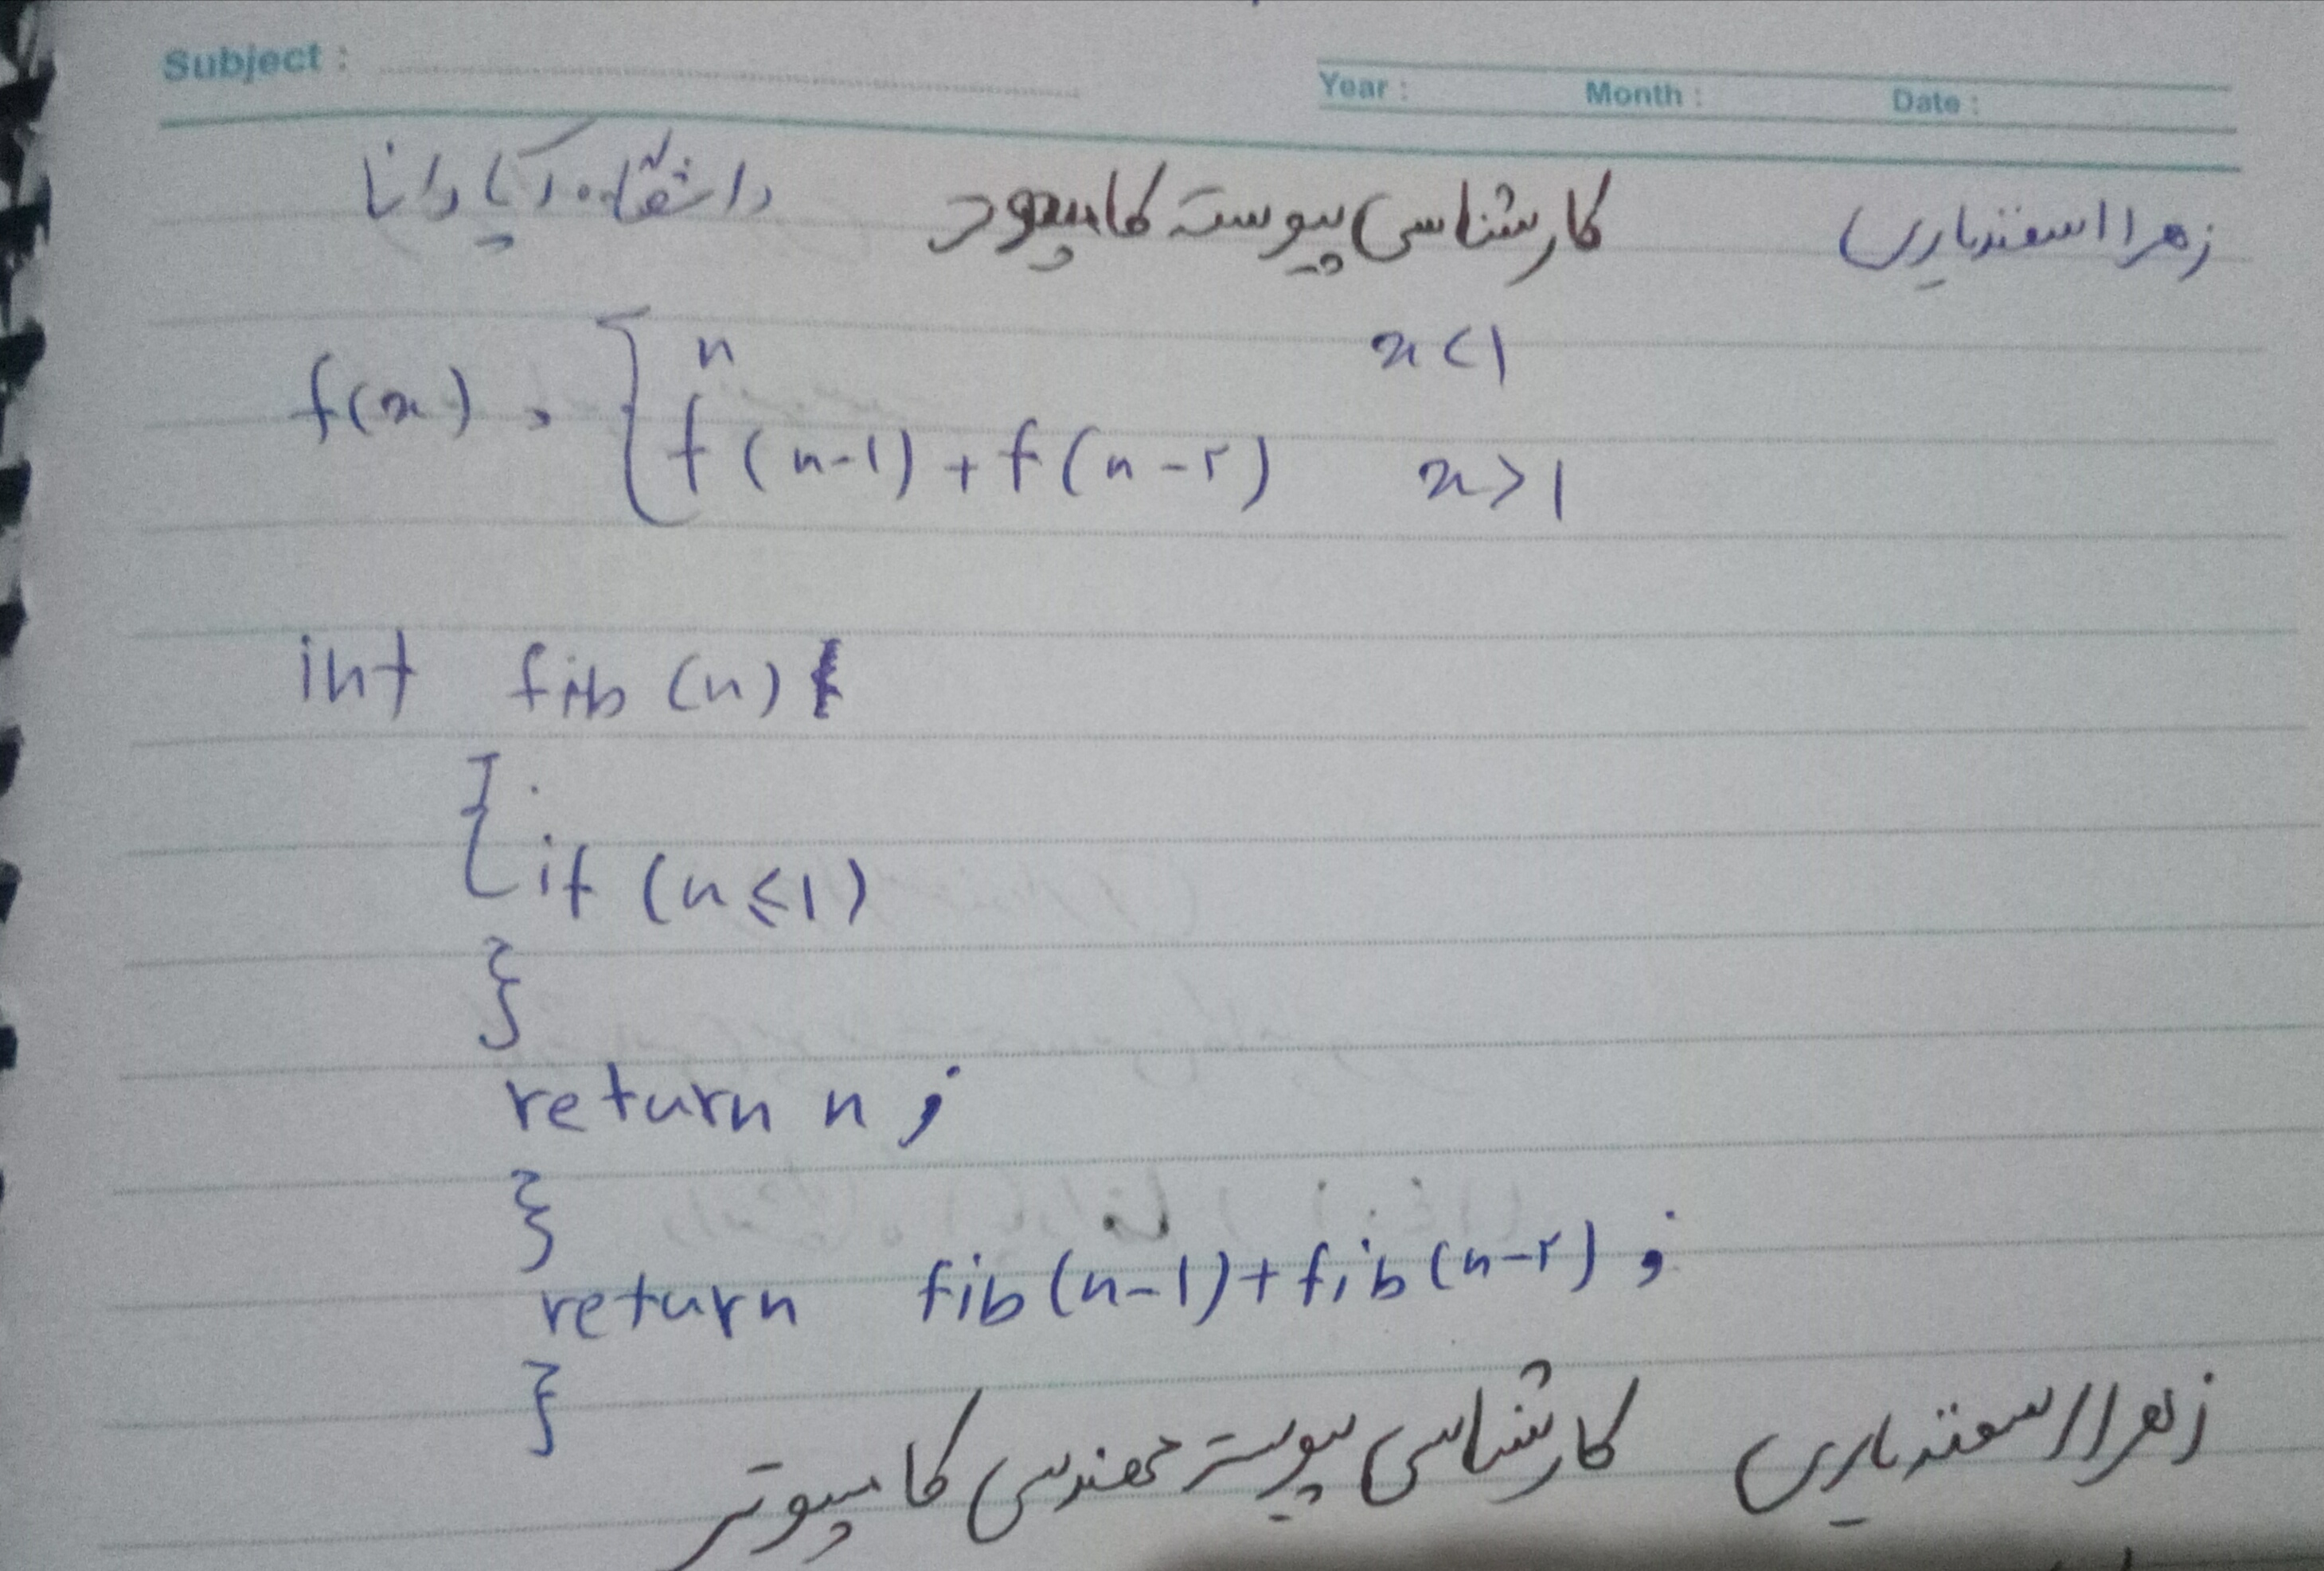 Subject :
Year : Month : Date :
زهرا اسفندیاری کارشناسی پیوسته کامپیوتر دانشگاه آپادانا
f(x) = { n x<1
f(n-1) + f(n-۲) x>1
int fib (n) {
{
if (n≤1)
}
return n ;
}
return fib(n-1)+fib(n-۲) ;
}
زهرا اسفندیاری کارشناسی پیوسته مهندسی کامپیوتر